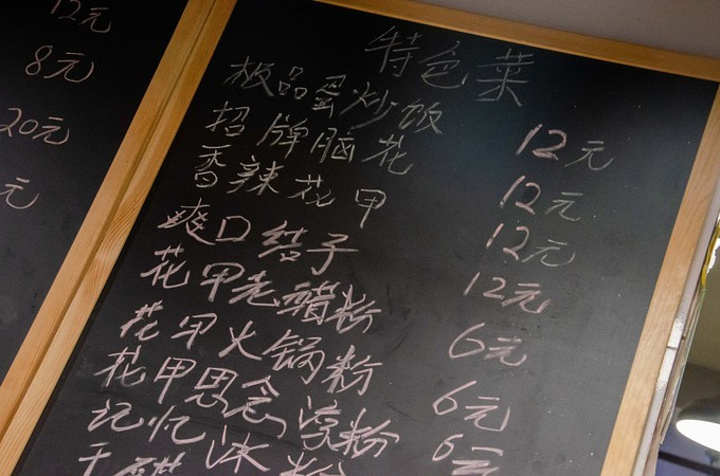 12元
8元
20元
元
特色菜
极品蛋炒饭 12元
招牌脑花 12元
香辣花甲 12元
爽口结子 12元
花甲老醋粉 6元
花甲火锅粉 6元
花甲思念凉粉 6元
记忆冰粉